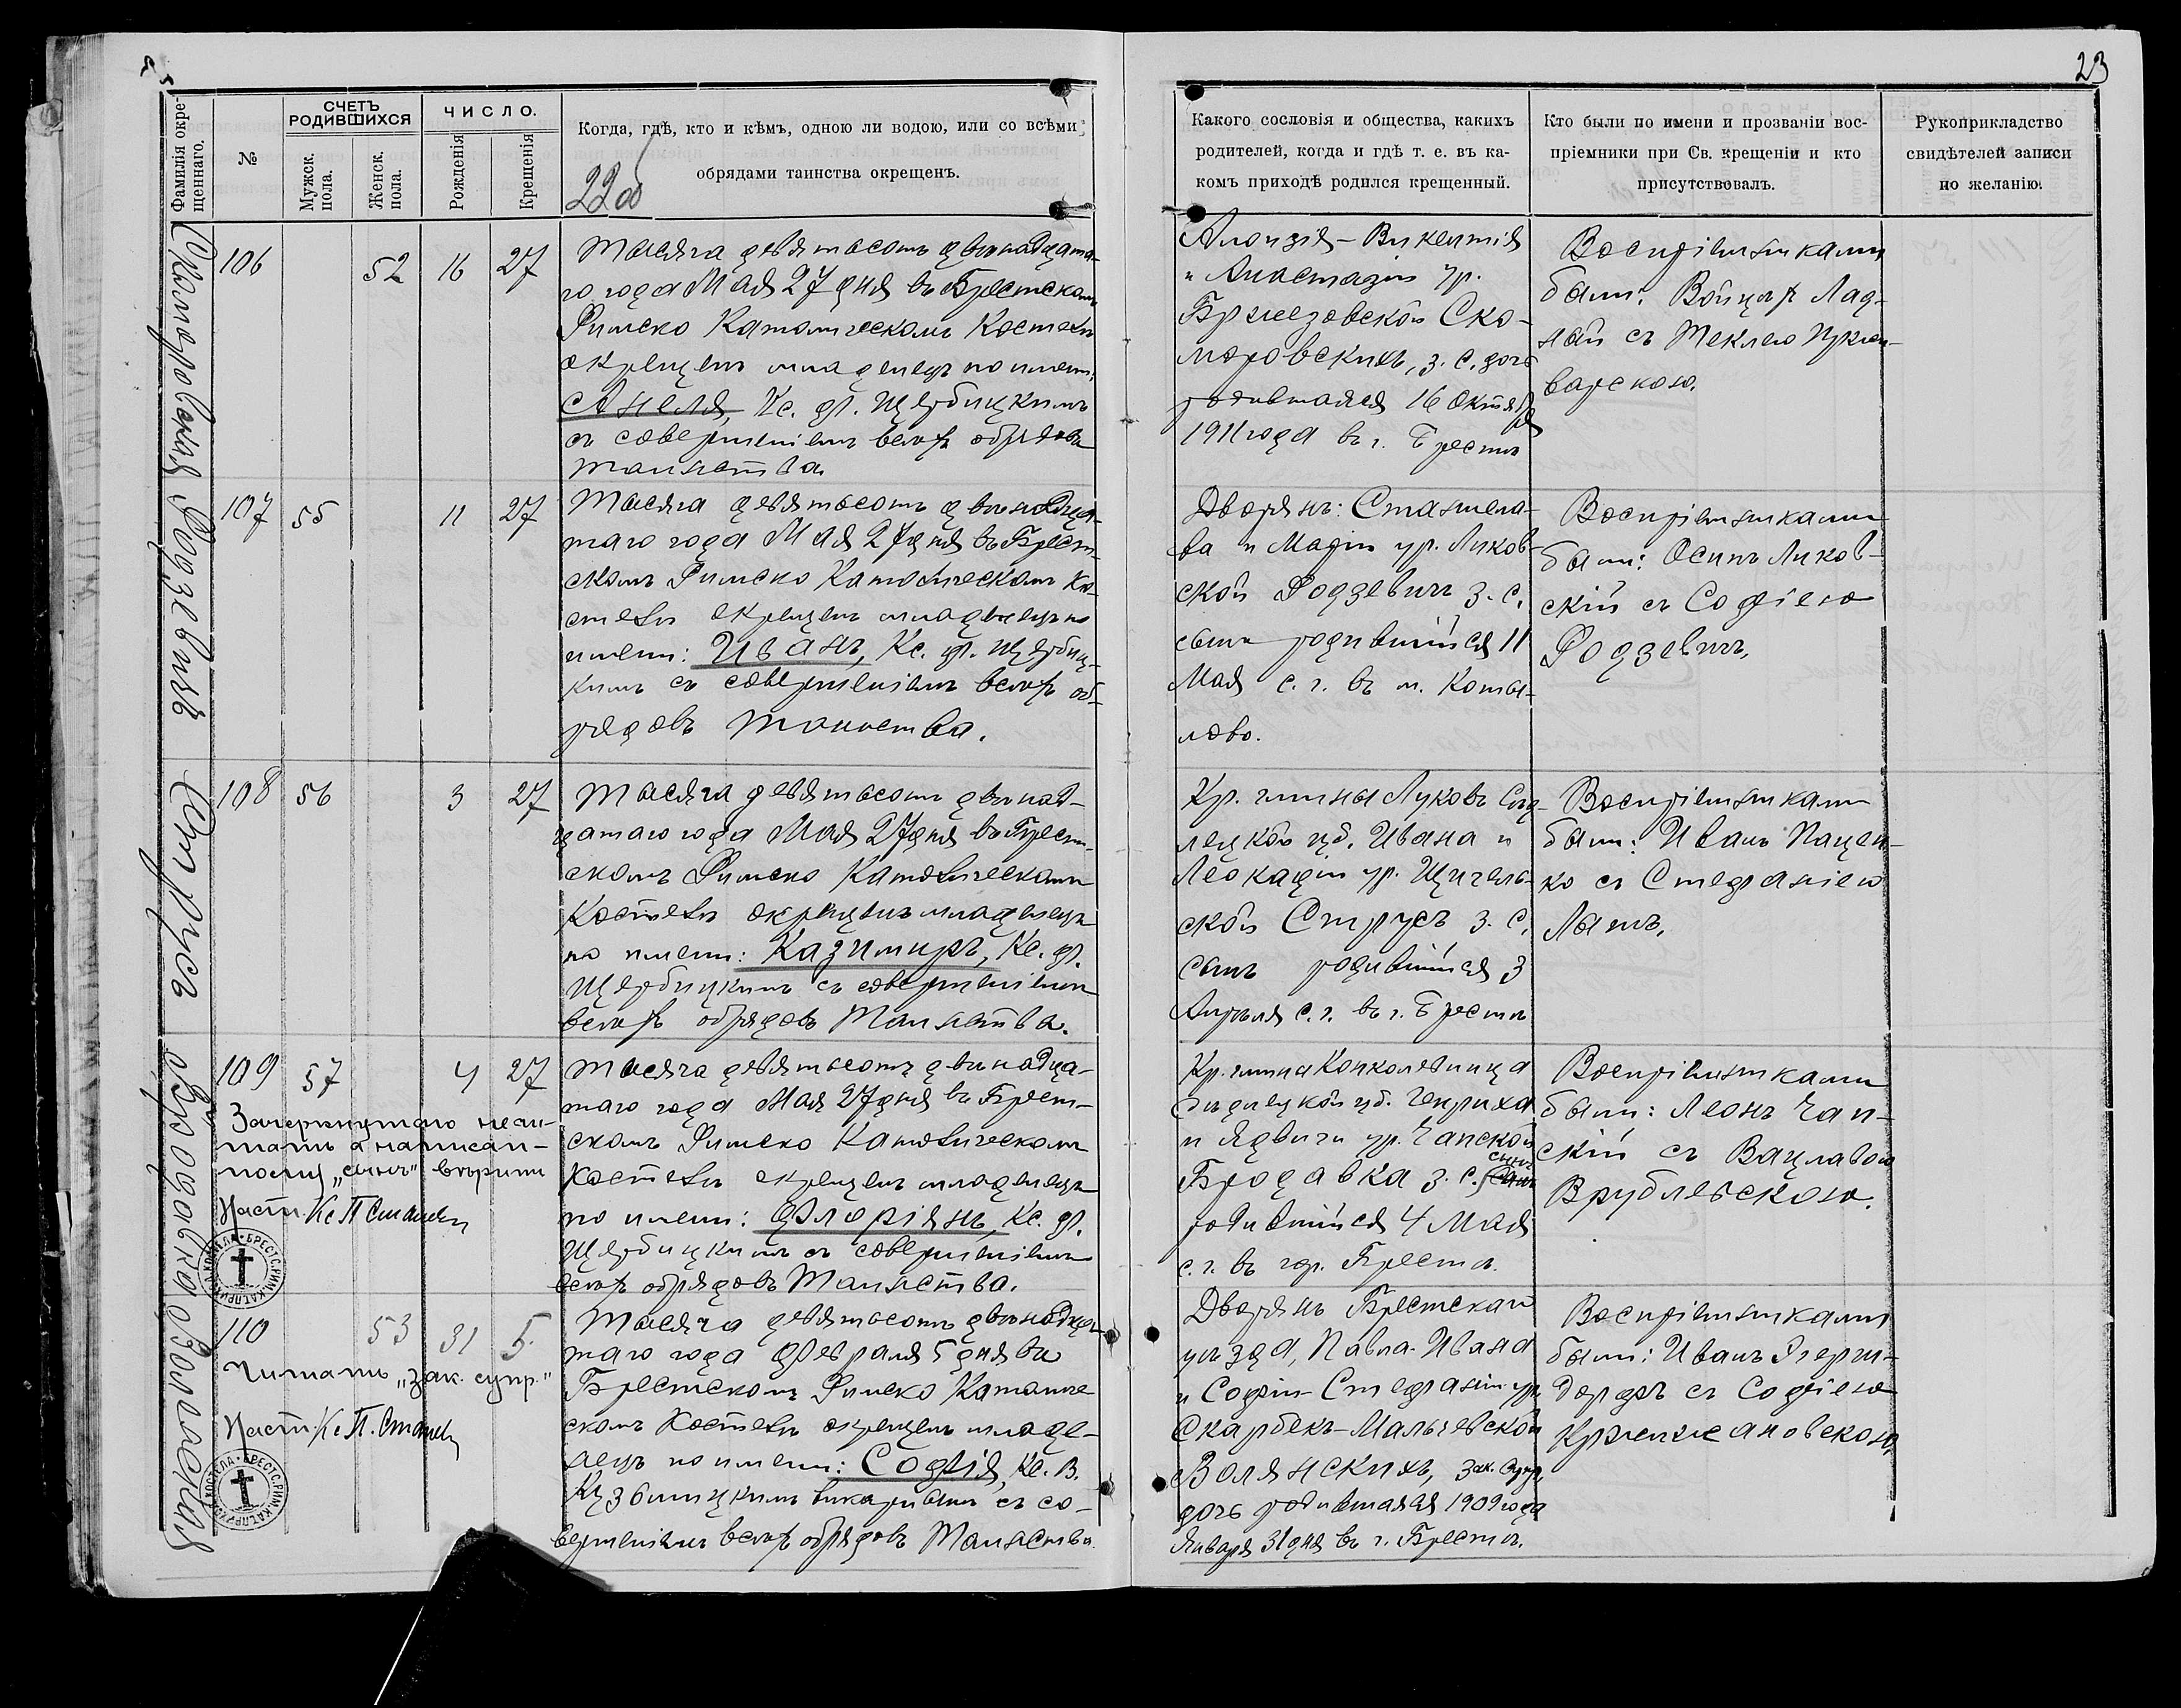 23
Фамилія окре-
щеннаго.
№
СЧЕТЪ
РОДИВШИХСЯ
Мужск.
пола.
Женск.
пола.
ЧИСЛО.
Рожденія
Крещенія
Когда, гдѣ, кто и кѣмъ, одною ли водою, или со всѣми
обрядами таинства окрещенъ.
22об
Какого сословія и общества, какихъ
родителей, когда и гдѣ т. е. въ ка-
комъ приходѣ родился крещенный.
Кто были по имени и прозваніи вос-
пріемники при Св. крещеніи и кто
присутствовалъ.
Рукоприкладство
свидѣтелей записи
по желанію.
Скоморовская
106
52
16
27
Тысяча девятьсотъ двѣнадцата-
го года Мая 27 дня въ Брестскомъ
Римско Католическомъ Костелѣ
окрещенъ младенецъ по имени:
Анеля, Кс. Ф. Щербицкимъ
съ совершеніемъ всѣхъ обрядовъ
таинства
Алоизія-Викентія
и Анастазіи ур.
Бржезовской Ско-
моровскихъ, з. с. дочь
родившаяся 16 Октября
1911 года въ г. Брестѣ
Воспріемниками
были: Войцѣхъ Лад-
ной съ Теклею
варскою.
Родзевичъ
107
55
11
27
Тысяча девятьсотъ двѣнадца-
таго года Мая 27 дня въ Брест-
скомъ Римско Католическомъ Ко-
стелѣ окрещенъ младенецъ по
имени: Иванъ, Кс. Ф. Щербиц-
кимъ съ совершеніемъ всѣхъ об-
рядовъ таинства.
Дворянъ: Станисла-
ва и Маріи ур. Ликов-
ской Родзевичъ з. с.
сынъ родившійся 11
Мая с. г. въ м. Коты-
лово.
Воспріемниками
были: Осипъ Ликов-
скій съ Софіею
Родзевичъ.
Струсъ
108
56
3
27
Тысяча девятьсотъ двѣнад-
цатаго года Мая 27 дня въ Брест-
скомъ Римско Католическомъ
Костелѣ окрещенъ младенецъ
по имени: Казимиръ, Кс. Ф.
Щербицкимъ съ совершеніемъ
всѣхъ обрядовъ Таинства.
Кр. гмины Луковъ Сѣд-
лецкой губ. Ивана и
Леокадіи ур. Щигель-
ской Струсъ з. с.
сынъ родившійся 3
Апрѣля с. г. въ г. Брестѣ
Воспріемниками
были: Иванъ Пацен-
ко съ Стефаніею
Лятъ.
Бродавка
109
57
4
27
Зачеркнутаго не чи-
тать а написан-
ному „сынъ" вѣрить
Наст. Кс П Стан
БРЕСТС.РИМ.КАТ.ПРИХОД. КОСТЕЛА
Тысяча девятьсотъ двѣнадца-
таго года Мая 27 дня въ Брест-
скомъ Римско Католическомъ
Костелѣ окрещенъ младенецъ
по имени: Флоріянъ, Кс. Ф.
Щербицкимъ съ совершеніемъ
всѣхъ обрядовъ Таинства.
Кр. гмина Конколевница
Сѣдлецкой губ. Генриха
и Ядвиги ур. Чапской
сынъ
Бродавка з. с.
родившійся 4 Мая
с. г. въ гор. Брестѣ.
Воспріемниками
были: Леонъ Чап-
скій съ Вацлавою
Врублевскою.
Волянская
110
53
31
5.
Читать „зак. супр."
Наст. Кс П. Стан
БРЕСТС.РИМ.КАТ.ПРИХОД. КОСТЕЛА
Тысяча девятьсотъ двѣнадца-
таго года Февраля 5 дня въ
Брестскомъ Римско Католиче-
скомъ Костелѣ окрещенъ младе-
нецъ по имени: Софія, Кс. В.
Кузьмицкимъ викаріемъ съ со-
вершеніемъ всѣхъ обрядовъ Таинства.
Дворянъ Брестскаго
уѣзда, Павла-Ивана
и Софіи-Стефаніи ур.
Скарбекъ-Мальчевской
Волянскихъ, зак. супр.
дочь родившаяся 1909 года
Января 31 дня въ г. Брестѣ.
Воспріемниками
были: Иванъ Эгерш-
дорфъ съ Софіею
Кржижановскою.